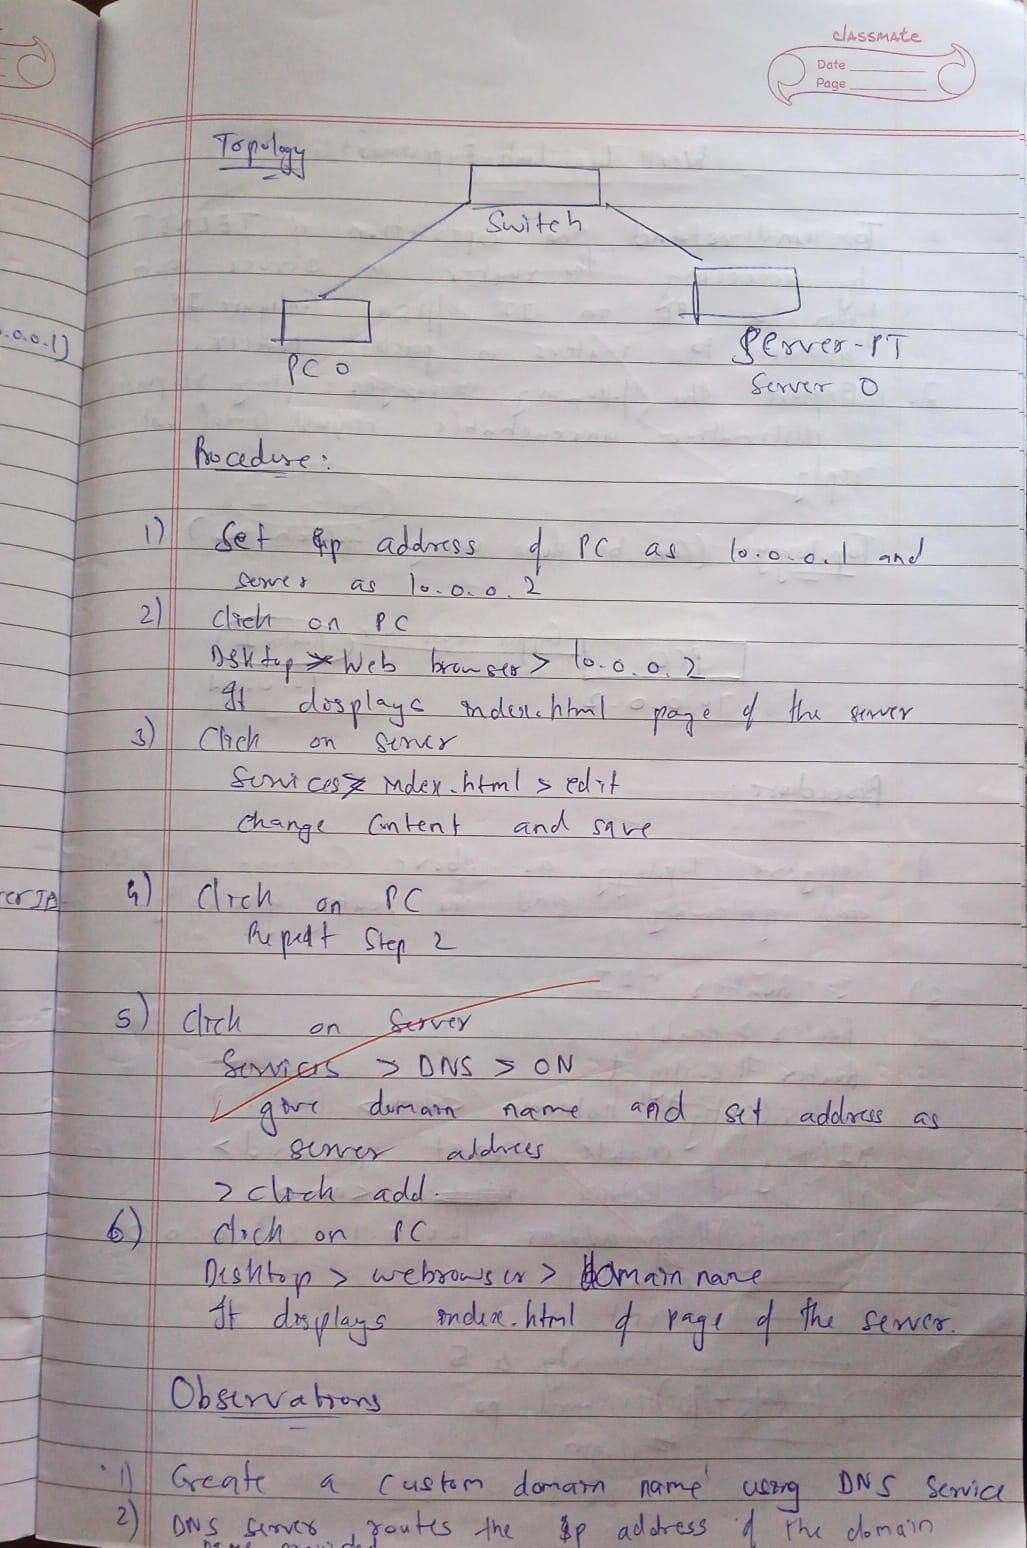 classmate
Date
Page
Topology
Switch
PC 0
Server-PT
Server 0
Procedure:
1) Set ip address of PC as 10.0.0.1 and
server as 10.0.0.2
2) Click on PC
Desktop > Web browser > 10.0.0.2
It displays index.html page of the server
3) Click on server
Services > index.html > edit
change content and save
4) Click on PC
Repeat Step 2
5) Click on Server
Services > DNS > ON
give domain name and set address as
server address
> click add.
6) click on PC
Desktop > webrowser > domain name
It displays index.html of page of the server.
Observations
1) Create a custom domain name using DNS Service
2) DNS server, routes the ip address of the domain
.0.0.1)